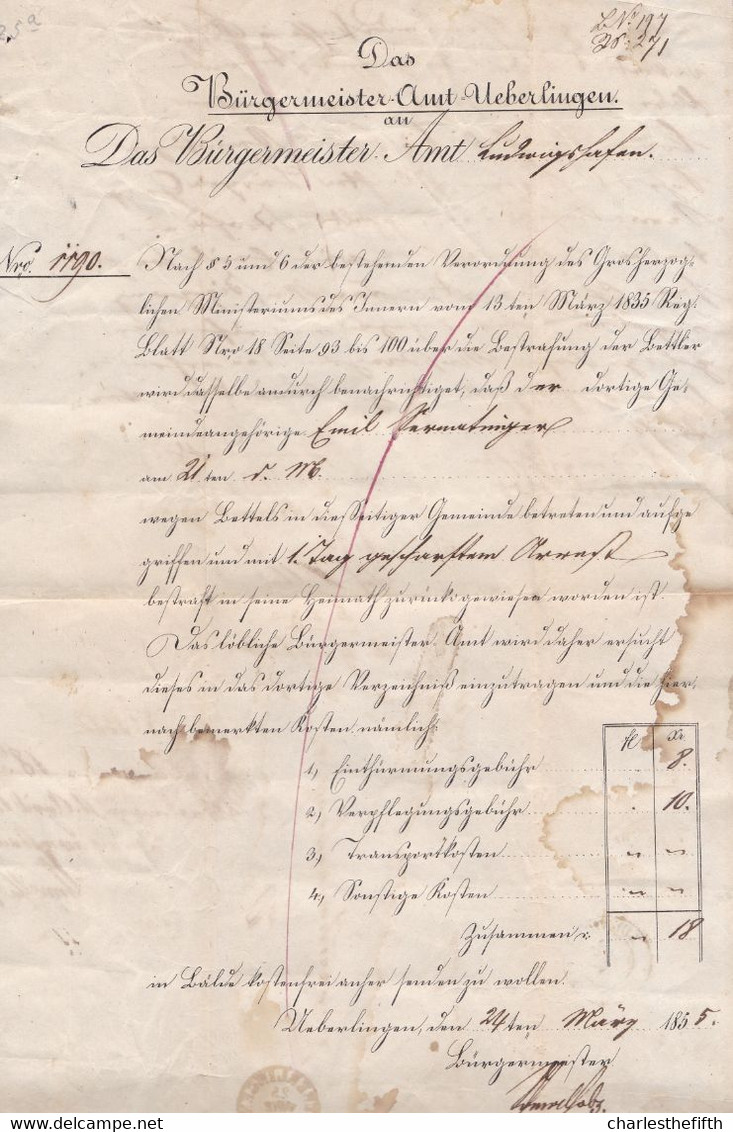 25a
L.N. 197
Das
Bürgermeister-Amt-Ueberlingen.
an
Das Bürgermeister-Amt Ludwigshafen.
Nro. 1190.
Nach § 5 und 6 der bestehenden Verordnung des Grosherzog-
lichen Ministeriums des Innern vom 13ten März 1835 Reg.
Blatt Nro 18 Seite 93 bis 100 über die Bestrafung der Bettler
wird dasselbe andurch benachrichtiget, daß der dortige Ge-
meindeangehörige Emil Sernatinger
am 21ten d. M.
wegen Bettels in diesseitiger Gemeinde betreten und aufge
griffen und mit 1. Tag geschärftem Arrest
bestraft in seine Heimath zurückgewiesen worden ist.
Das löbliche Bürgermeister-Amt wird daher ersucht
dieses in das dortige Verzeichniß einzutragen und die hier,
nach bemerkten Kosten, nämlich:
fl xr
1, Einthürmungsgebühr 8.
2, Verpflegungsgebühr 10.
3, Transportkosten " "
4, Sonstige Kosten " "
Zusammen " 18
in Bälde kostenfrei anher senden zu wollen.
Ueberlingen, den 24ten März 1855.
Bürgermeister
charlesthefifth